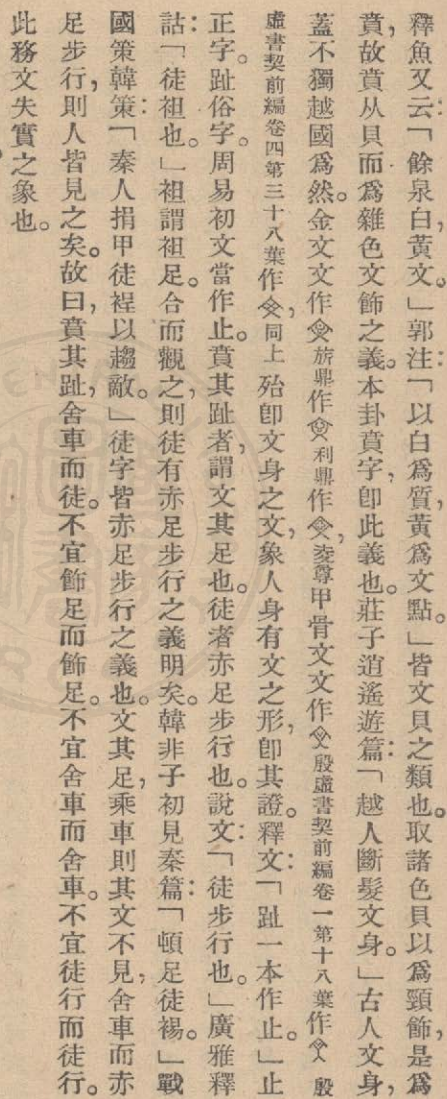 釋魚又云:「餘泉白,黃文。」郭注:「以白爲質,黃爲文點。」皆文貝之類也。取諸色貝以爲頸飾,是爲
賁,故賁从貝而爲雜色文飾之義。本卦賁字,卽此義也。莊子逍遙遊篇:「越人斷髮文身。」古人文身,
蓋不獨越國爲然。金文文作 旂鼎作 利鼎作 㚆尊甲骨文文作 殷虛書契前編卷一第十八葉作 殷
虛書契前編卷四第三十八葉作 ,同上 殆卽文身之文,象人身有文之形,卽其證。釋文:「趾一本作止。」止
正字。趾俗字。周易初文當作止。賁其趾者,謂文其足也。徒者赤足步行也。說文:「徒步行也。」廣雅釋
詁:「徒袒也。」袒謂袒足。合而觀之,則徒有赤足步行之義明矣。韓非子初見秦篇:「頓足徒裼。」戰
國策韓策:「秦人捐甲徒裎以趨敵。」徒字皆赤足步行之義也。文其足,乘車則其文不見,舍車而赤
足步行,則人皆見之矣。故曰,賁其趾,舍車而徒。不宜飾足而飾足。不宜舍車而舍車。不宜徒行而徒行。
此務文失實之象也。